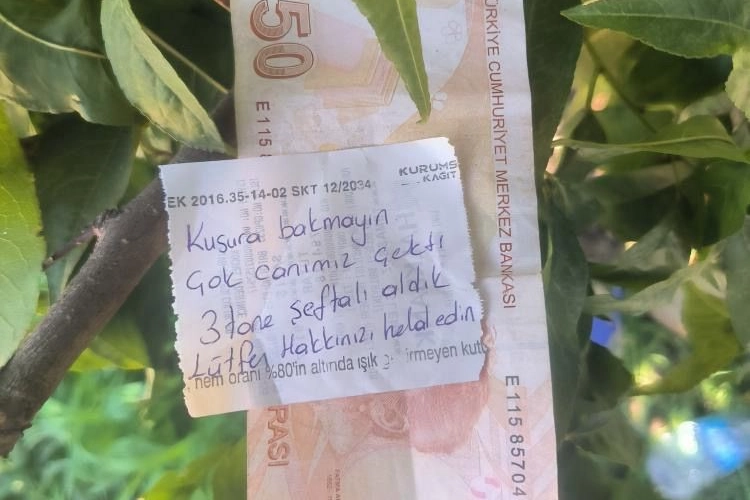 50
TÜRKİYE CUMHURİYET MERKEZ BANKASI
E 115 8
EK 2016.35-14-02 SKT 12/2034
KURUMS
KAGIT
Kusura bakmayın
Çok canımız çekti
3 tane şeftali aldık
Lütfen Hakkınızı helal edin
nem oranı %80'in altında ışık irmeyen kutu
E 115 85704
RASI